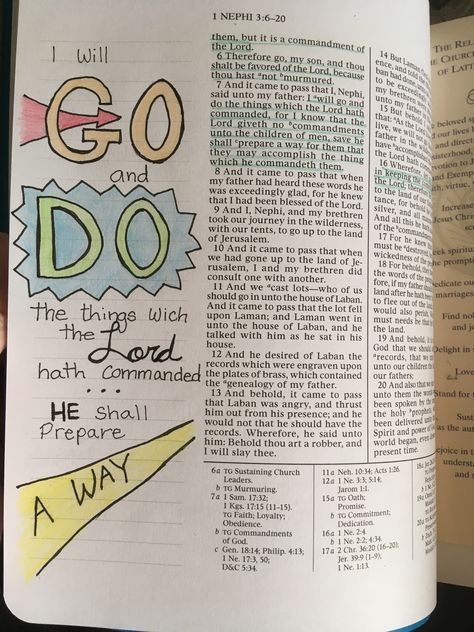 1 NEPHI 3:6–20
I Will
GO
and
DO
the things wich
the Lord
hath Commanded
...
HE shall
Prepare
A WAY
them, but it is a commandment of
the Lord.
6 Therefore go, my son, and thou
shalt be favored of the Lord, because
thou hast ᵃnot ᵇmurmured.
7 And it came to pass that I, Nephi,
said unto my father: I ᵃwill go and
do the things which the Lord hath
commanded, for I know that the
Lord giveth no ᵇcommandments
unto the children of men, save he
shall ᶜprepare a way for them that
they may accomplish the thing
which he commandeth them.
8 And it came to pass that when
my father had heard these words he
was exceedingly glad, for he knew
that I had been blessed of the Lord.
9 And I, Nephi, and my brethren
took our journey in the wilderness,
with our tents, to go up to the land
of Jerusalem.
10 And it came to pass that when
we had gone up to the land of Je-
rusalem, I and my brethren did
consult one with another.
11 And we ᵃcast lots—who of us
should go in unto the house of Laban.
And it came to pass that the lot fell
upon Laman; and Laman went in
unto the house of Laban, and he
talked with him as he sat in his
house.
12 And he desired of Laban the
records which were engraven upon
the plates of brass, which contained
the ᵃgenealogy of my father.
13 And behold, it came to pass
that Laban was angry, and thrust
him out from his presence; and he
would not that he should have the
records. Wherefore, he said unto
him: Behold thou art a robber, and
I will slay thee.
14 But Laman
ence, and told
ban had done
to be exceeding
my brethren
unto my father
15 But behold
that: ᵃAs the Lo
live, we will
father in the
have ᵇaccom
the Lord hath
16 Wherefore,
in keeping the
the Lord; there
to the land of
tance, for behold
silver, and all
And all this he
of the ᵇcomman
17 For he knew
must be ᵃdestroyed
wickedness of the
18 For behold, they
the words of the
fore, if my father
land after he hath
to flee out of the
would also perish.
must needs be that
the land.
19 And behold, it
God that we should
ᵃrecords, that we
unto our children
our fathers;
20 And also that we
unto them the words
been spoken by the
the holy ᵃprophets,
been delivered unto
Spirit and power of
world began, even
present time.
6a TG Sustaining Church
Leaders.
b TG Murmuring.
7a 1 Sam. 17:32;
1 Kgs. 17:15 (11–15).
TG Faith; Loyalty;
Obedience.
b TG Commandments
of God.
c Gen. 18:14; Philip. 4:13;
1 Ne. 17:3, 50;
D&C 5:34.
11a Neh. 10:34; Acts 1:26.
12a 1 Ne. 3:3; 5:14;
Jarom 1:1.
15a TG Oath;
Promise.
b TG Commitment;
Dedication.
16a 1 Ne. 2:4.
b 1 Ne. 2:2; 4:34.
17a 2 Chr. 36:20 (16–20);
Jer. 39:9 (1–9);
1 Ne. 1:13.
THE REL
THE CHURCH
OF LATT